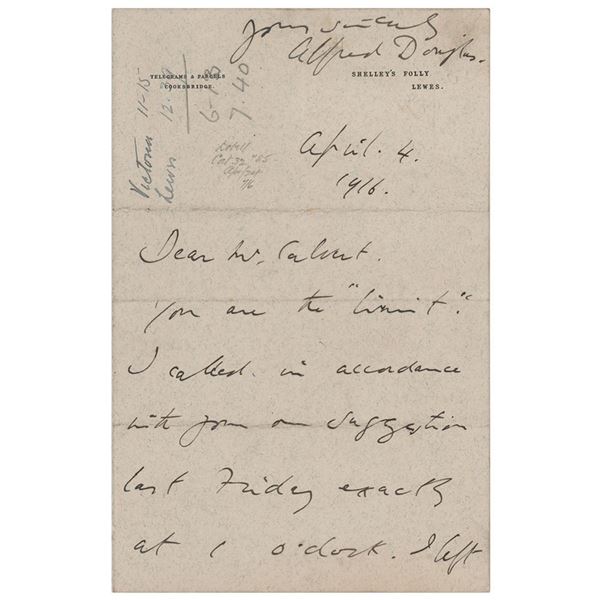 Yours sincerely
Alfred Douglas.
TELEGRAMS & PARCELS
COOKSBRIDGE.
SHELLEY'S FOLLY
LEWES.
Victoria 11-15
Lewes 12.
6-13
7.40
April. 4.
1916.
Dear Mr. Calvert.
You are the "limit".
I called. in accordance
with your own suggestion
last Friday exactly
at 1 o'clock. I left